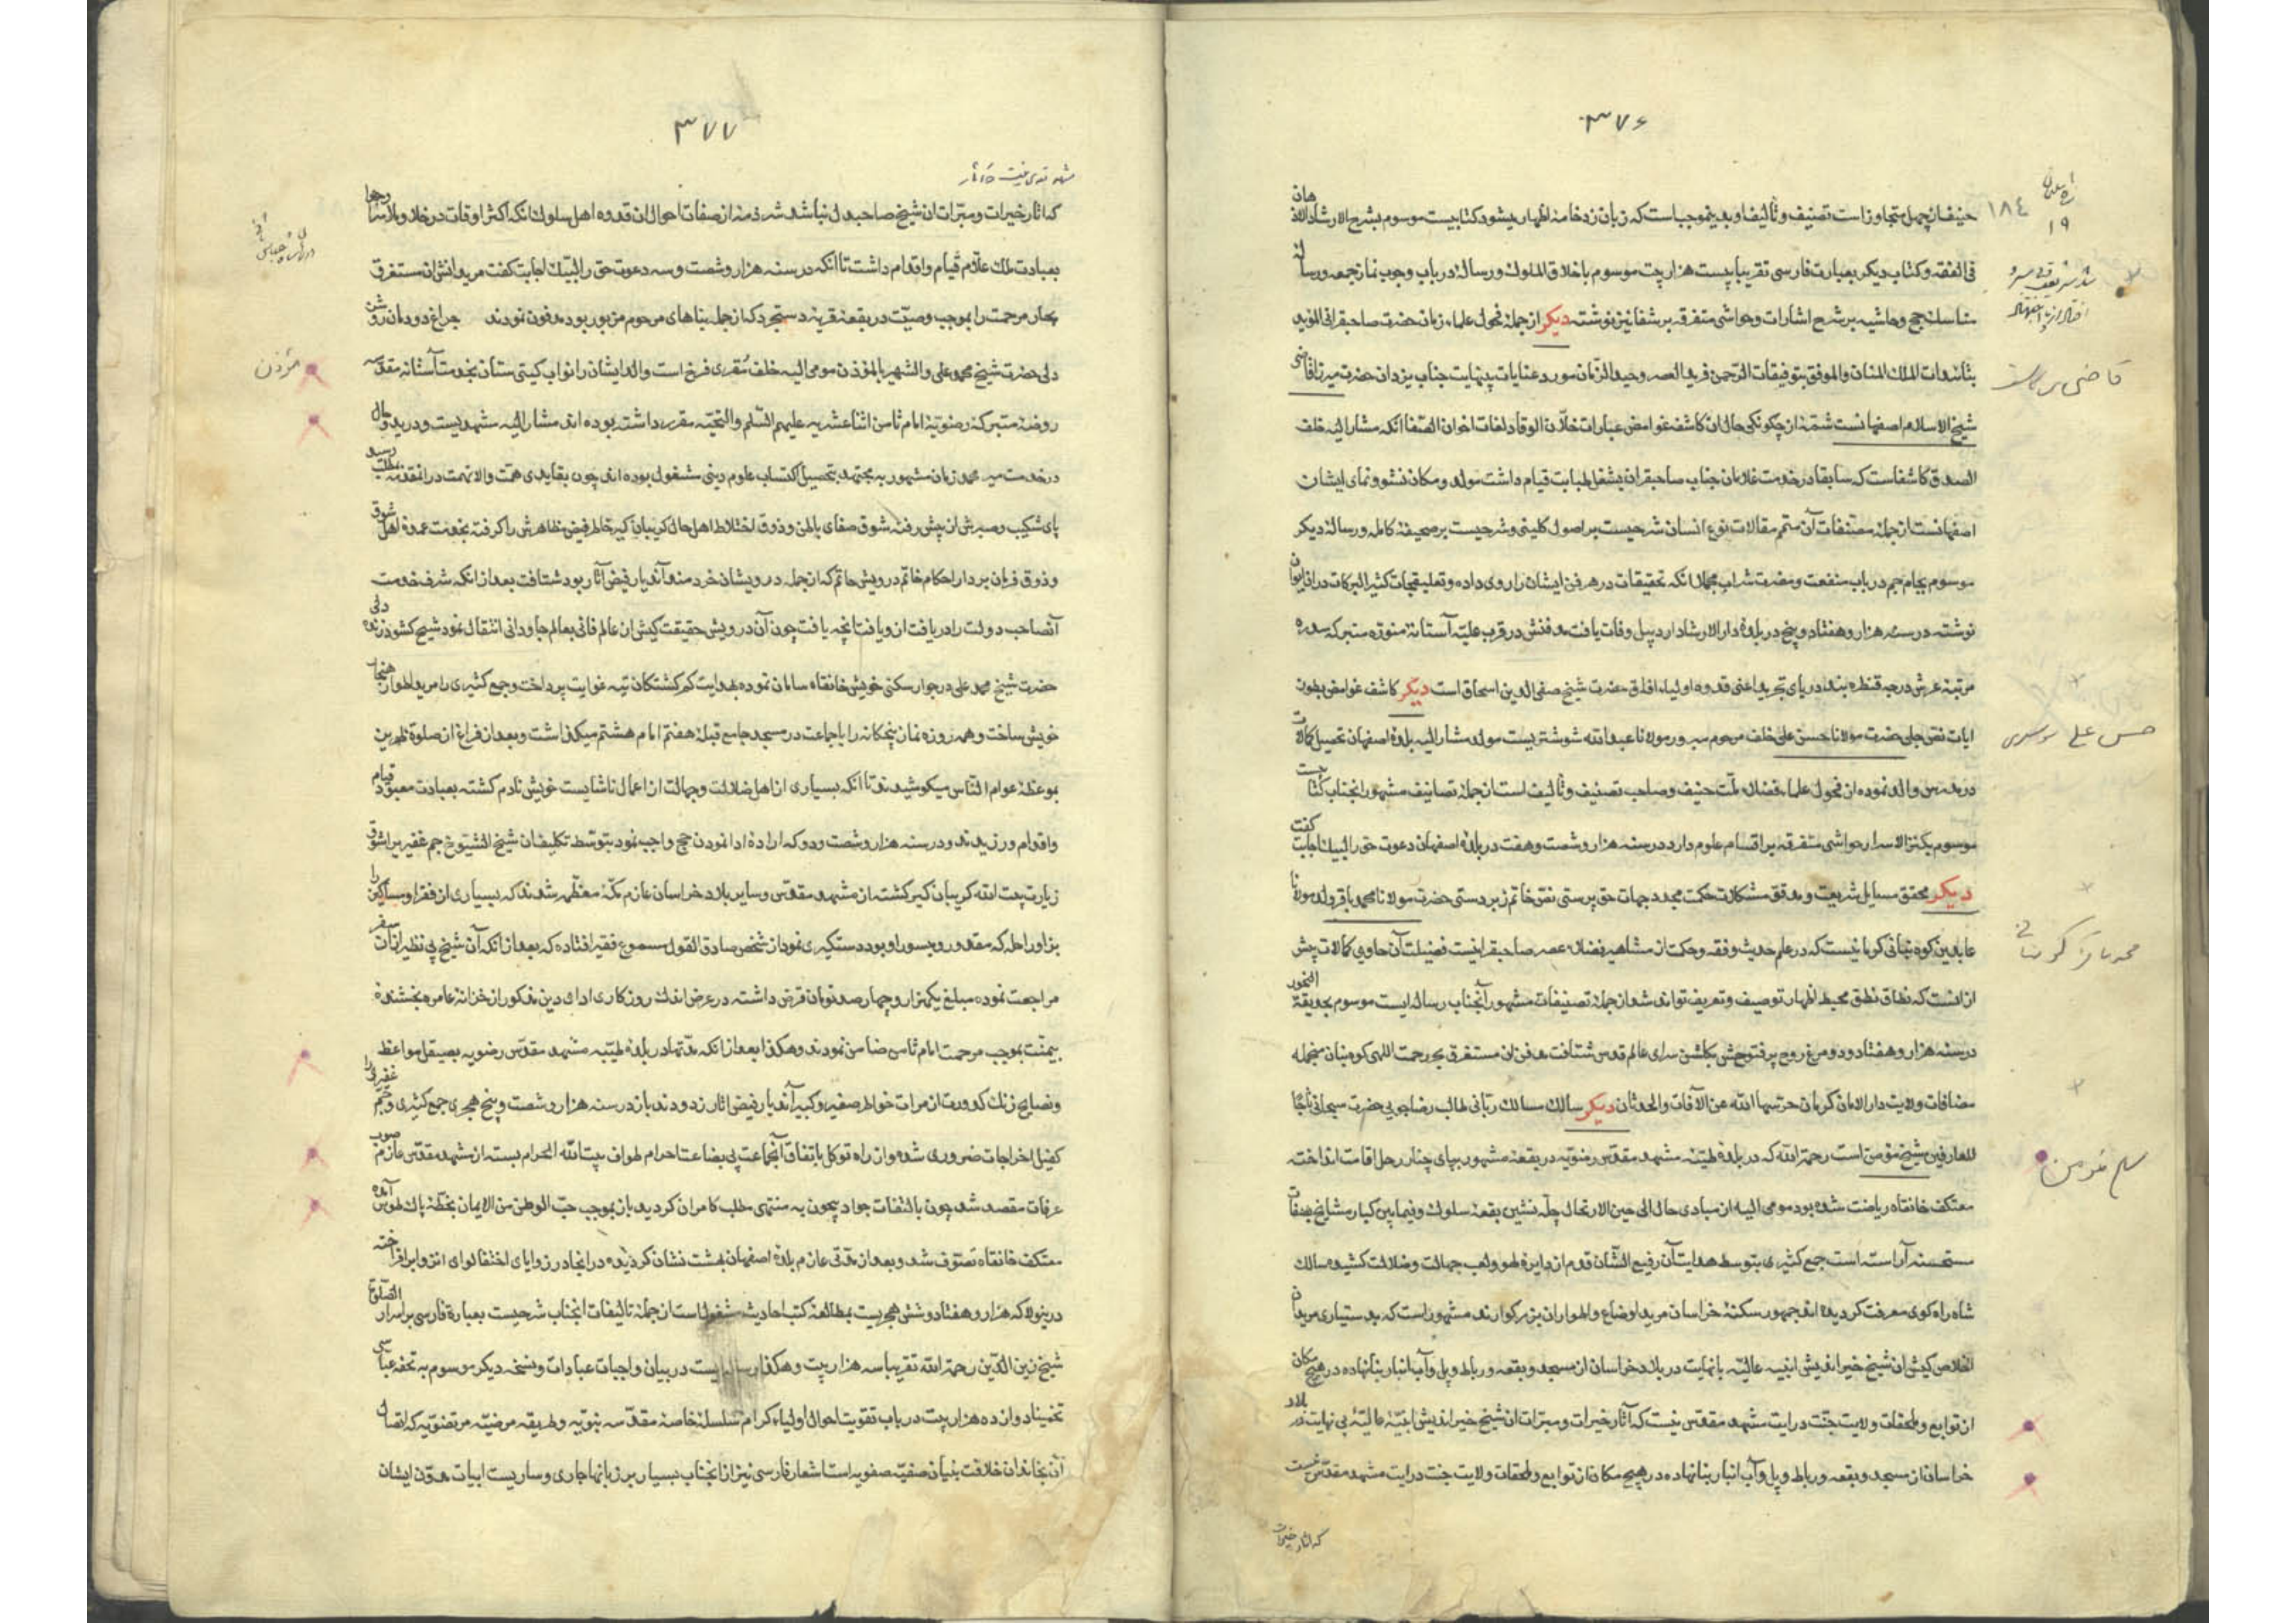 ۳۷۶
حنیف از چهل متجاوز است تصنیف و تألیف او بدینموجب است که زبان زد خامهٔ اظهار میشود کتابیست موسوم بشرح الارشاد
فی الفقه و کتاب دیگر بعبارت فارسی تقریبا بیست هزار بیت موسوم باخلاق الملوک و رساله در باب وجوب نماز جمعه و رساله
مناسک حج و حاشیه بر شرح اشارات و حواشی متفرقه بر شفا نیز نوشته دیکر از جملهٔ فحول علماء زمان حضرت صاحبقرانی المؤید
بتائیدات الملک المنان والموفق بتوفیقات الرحمن فرید العصر وحید الزمان مورد عنایات بینهایت جناب یزدان حضرت میرزا قاضی
شیخ الاسلام اصفهانست شمهٔ از چکونکی حال آن کاشف غوامض عبارات خلان الوفا و لغات اخوان الصفا آنکه مشار الیه خلف
الصدق کاشفاست که سابقا در خدمت غلامان جناب صاحبقران بشغل طبابت قیام داشت مولد و مکان نشو و نمای ایشان
اصفهانست از جملهٔ مصنفات آن متمم مقالات نوع انسان شرحیست بر اصول کلینی و شرحیست بر صحیفهٔ کامله و رسالهٔ دیکر
موسوم بجام جم در باب منفعت و مضرت شراب مجملا آنکه تحقیقات در هر فن ایشان را روی داده و تعلیقجات کثیر البرکات در آن ابواب
نوشته در سنه هزار و هفتاد و پنج در بلدهٔ دار الارشاد اردبیل وفات یافت مدفنش در قرب علیه آستانهٔ منوره متبرکه سدره
مرتبهٔ عرش درجه قنطره بند دریای تجرید اعنی قدوه اولیاء افاق حضرت شیخ صفی الدین اسحاق است دیکر کاشف غوامض بطون
ایات نص جلی حضرت مولانا حسن علی خلف مرحوم مبرور مولانا عبدالله شوشتریست مولد مشار الیه بلدهٔ اصفهان تحصیل کمالات
در مدرس والد نموده از فحول علماء فضلاء ملت حنیف و صاحب تصنیف و تألیف است از جملهٔ تصانیف مشهور انجناب کتابیست
موسوم بکنز الاسرار حواشی متفرقه بر اقسام علوم دارد در سنه هزار و شصت و هفت در بلدهٔ اصفهان دعوت حق را لبیک اجابت کفت
دیکر محقق مسایل شریعت و مدقق مشکلات حکمت مجدد جهات حق پرستی نقش خاتم زبردستی حضرت مولانا محمد باقر ولد مولانا
عابدین کوه بنانی کرمانیست که در علم حدیث و فقه و حکمت از مشاهیر فضلاء عصر صاحبقرانیست فضیلت آن حاوی کمالات بیش
از آنست که نطاق نطق محیط اظهار توصیف و تعریف تواند شد از جملهٔ تصنیفات مشهور آنجناب رساله ایست موسوم بحدیقة
در سنه هزار و هفتاد و دو مرغ روح پر فتوحش بکلشن سرای عالم قدس شتافت مدفن آن مستغرق بحر رحمت اللهی کوه بنان منجمله
مضافات ولایت دار الامان کرمان حرسها الله عن الآفات والحدثان دیکر سالک مسالک ربانی طالب رضاجویی حضرت سبحانی تاجا
للعارفین شیخ مؤمن است رحمة الله که در بلدهٔ طیبهٔ مشهد مقدس رضویه در بقعهٔ مشهور بپای چنار رحل اقامت انداخته
معتکف خانقاه ریاضت شده بود مومی الیه از مبادی حال الی حین الارتحال چله نشین بقعهٔ سلوک و فیما بین کبار مشایخ بصفات
مستحسنه آراسته است جمع کثیری بتوسط هدایت آن رفیع الشان قدم از دایرهٔ لهو و لعب جهالت و ضلالت کشیده سالک
شاه راه کوی معرفت کردیده اند جمهور سکنهٔ خراسان مرید اوضاع و اطوار آن بزرکوارند مشهور است که بدستیاری مریدان
اخلاص کیش آن شیخ خیر اندیش ابنیهٔ عالیه بانهایت در بلاد خراسان از مسجد و بقعه و رباط و پل و آب انبار بنا نهاده در هیچ مکان
از توابع و ملحقات ولایت جنت درایت مشهد مقدس نیست که آثار خیرات و مبرات آن شیخ خیر اندیش ابنیهٔ عالیهٔ بی نهایت در بلاد
خراسان از مسجد و بقعه و رباط و پل و آب انبار بنا نهاده در هیچ مکان از توابع و ملحقات ولایت جنت درایت مشهد مقدس نیست
که اثار خیرات
۱۸۴
۱۹
محمد باقر
حسن علی
۳۷۷
که آثار خیرات و مبرات آن شیخ صاحبدل نباشد شرذمهٔ از صفات احوال آن قدوه اهل سلوک آنکه اکثر اوقات در خلاء و ملاء
بعبادت ملک علام قیام و اقدام داشت تا آنکه در سنه هزار و شصت و سه دعوت حق را لبیک اجابت کفت مریدانش آن مستغرق
بحار مرحمت را بموجب وصیت در بقعهٔ قریهٔ دستجرد که از جمله بناهای مرحوم مزبور بود مدفون نمودند چراغ دودمان روشن
دلی حضرت شیخ محمد علی والشهیر بالمؤذن مومی الیه خلف مقری فرخ است والد ایشان را نواب کیتی ستان بخدمت آستانه مقدسه
روضهٔ متبرکهٔ رضویهٔ امام ثامن اثنا عشریه علیهم السلم والتحیه مقرر داشته بوده اند مشار الیه مشهدیست و در بدو حال
در خدمت میر محمد زمان مشهور به مجتهد بتحصیل اکتساب علوم دینی مشغول بوده اند چون بقایدی همت والا نهمت در انقد مطلب رسید
پای شکیب و صبرش از پیش رفته شوق صفای باطن و ذوق اختلاط اهل حال کریبان کیر خاطر فیض مظاهرش را کرفته بخدمت عمدهٔ اهل شوق
و ذوق فرمان بردار احکام خاتم درویش حاتم که از جمله درویشان خردمند آندیار فیض آثار بود شتافت بعد از آنکه شرف خدمت
آنصاحب دولت را دریافت از و یافت انچه یافت چون آن درویش حقیقت کیش از عالم فانی بعالم جاودانی انتقال نمود شیخ کشور زنده دلی
حضرت شیخ محمد علی در جوار سکنی خویش خانقاه سامان نموده بهدایت کم کشتکان تیه غوایت پرداخت و جمع کثیری را مرید اطوار
خویش ساخت و همه روزه نماز پنجکانه را با جماعت در مسجد جامع قبلهٔ هفتم امام هشتم میکذاشت و بعد از فراغ از صلوة ظهرین
بموعظهٔ عوام الناس میکوشیدند تا آنکه بسیاری از اهل ضلالت و جهالت از اعمال ناشایست خویش نادم کشته بعبادت معبود قیام
و اقدام ورزیدند و در سنه هزار و شصت و دو که ارادهٔ ادا نمودن حج واجب نمود بتوسط تکلیف آن شیخ الشیوخ جم غفیر را شوق
زیارت بیت الله کریبان کیر کشته از مشهد مقدس و سایر بلاد خراسان عازم مکهٔ معظمه شدند که بسیاری از فقرا و مساکین را
بزاد و راحله که مقدور و میسور او بود دستکیری نمود از شخص صادق القول مسموع فقیر افتاده که بعد از آنکه آن شیخ بی نظیر از آن سفر
مراجعت نموده مبلغ یکهزار و چهار صد تومان قرض داشته در عرض اندک روزکاری ادای دین مذکور از خزانهٔ عامره بخشندهٔ
بیمنت بموجب مرحمت امام ثامن ضامن نمودند و هکذا بعد از آنکه مدتها در بلدهٔ طیبه مشهد مقدس رضویه بصیقل مواعظ
و نصایح زنک کدورت از مرات خواطر صغیر و کبیر آندیار فیض آثار زدودند باز در سنه هزار و شصت و پنج هجری جمع کثیری و جم غفیری را
کفیل اخراجات ضروری شده و از راه توکل باتفاق آنجماعت بی بضاعت احرام طواف بیت الله الحرام بسته از مشهد مقدس عازم صوب
عرفات مقصد شد چون بالتفات جواد بیچون به منتهی مطلب کامران کردید باز بموجب حب الوطن من الایمان بخطهٔ پاک طوس آمده
معتکف خانقاه تصوف شد و بعد از مدتی عازم بلدهٔ اصفهان بهشت نشان کردیده در انجا در زوایای اختفا لوای انزوا بر افراخته
در ینولا که هزار و هفتاد و شش هجریست بمطالعهٔ کتب احادیث مشغول است از جملهٔ تالیفات انجناب شرحیست بعبارة فارسی بر اسرار الصلوة
شیخ زین الدین رحمة الله تقریبا سه هزار بیت و هکذا رساله ایست در بیان واجبات عبادات و نسخه دیکر موسوم به تحفه عباسی
تخمینا دوازده هزار بیت در باب تقویت احوال اولیاء کرام سلسلهٔ خاصهٔ مقدسه نبویه و طریقه مرضیه مرتضویه که اتصال
آن بخاندان خلافت بنیان صفیه صفویه است اشعار فارسی نیز از انجناب بسیار بر زبانها جاری و ساریست ابیات مدون ایشان
مؤذن